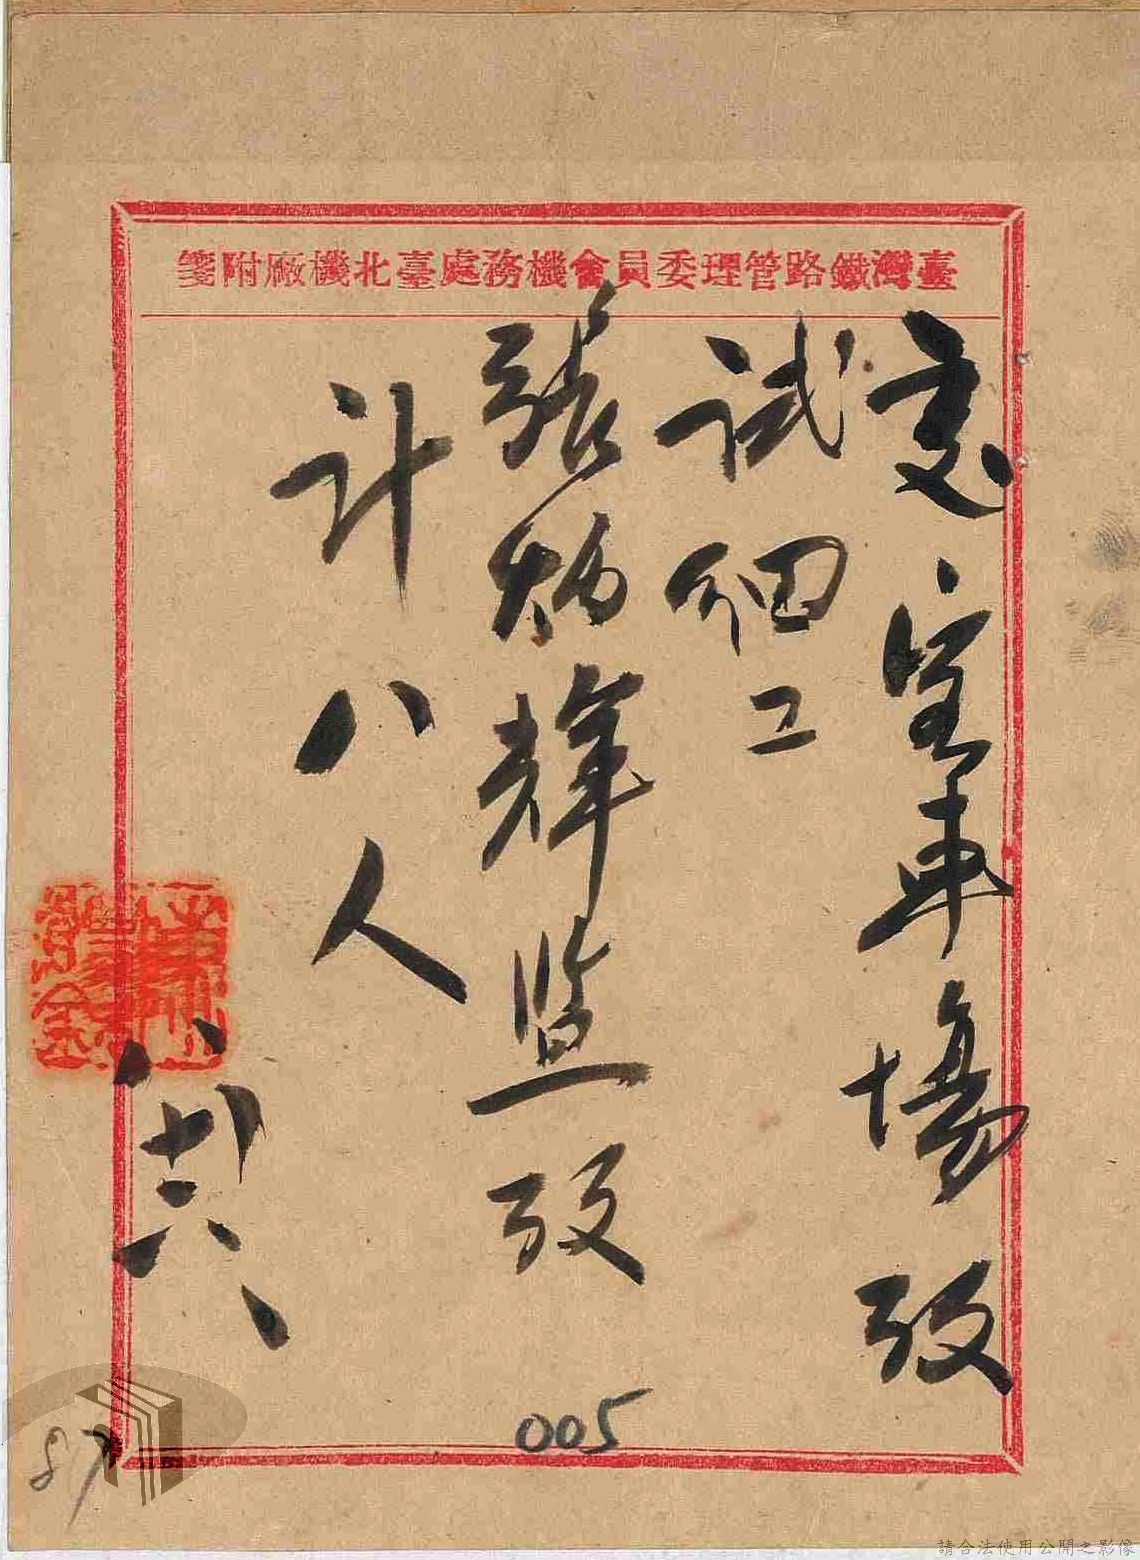 臺灣鐵路管理委員會機務處臺北機廠附箋
交客車場攷
試細工
張炳輝監攷
計八人
八廿六
005
87
請合法使用公開之影像